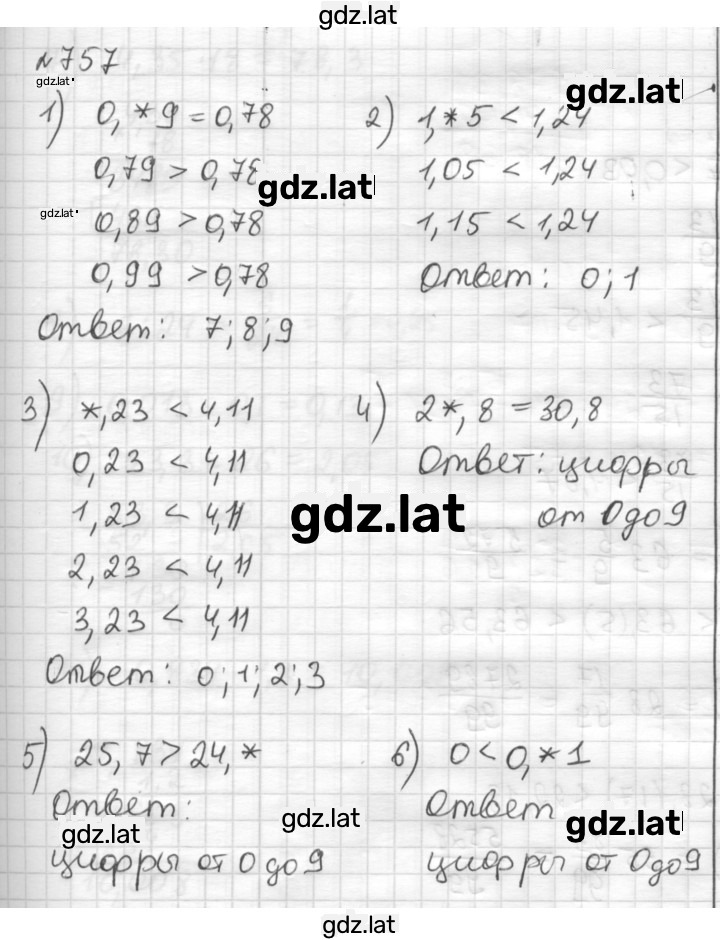 gdz.lat
№757
gdz.lat
gdz.lat
1) 0,*9 = 0,78
0,79 > 0,78
gdz.lat
gdz.lat
0,89 > 0,78
0,99 > 0,78
Ответ: 7; 8; 9
2) 1,*5 < 1,24
1,05 < 1,24
1,15 < 1,24
Ответ: 0; 1
3) *,23 < 4,11
0,23 < 4,11
1,23 < 4,11
2,23 < 4,11
3,23 < 4,11
Ответ: 0; 1; 2; 3
4) 2*,8 = 30,8
Ответ: цифры
от 0 до 9
gdz.lat
5) 25,7 > 24,*
Ответ:
цифры от 0 до 9
gdz.lat
gdz.lat
6) 0 < 0,*1
Ответ
цифры от 0 до 9
gdz.lat
gdz.lat